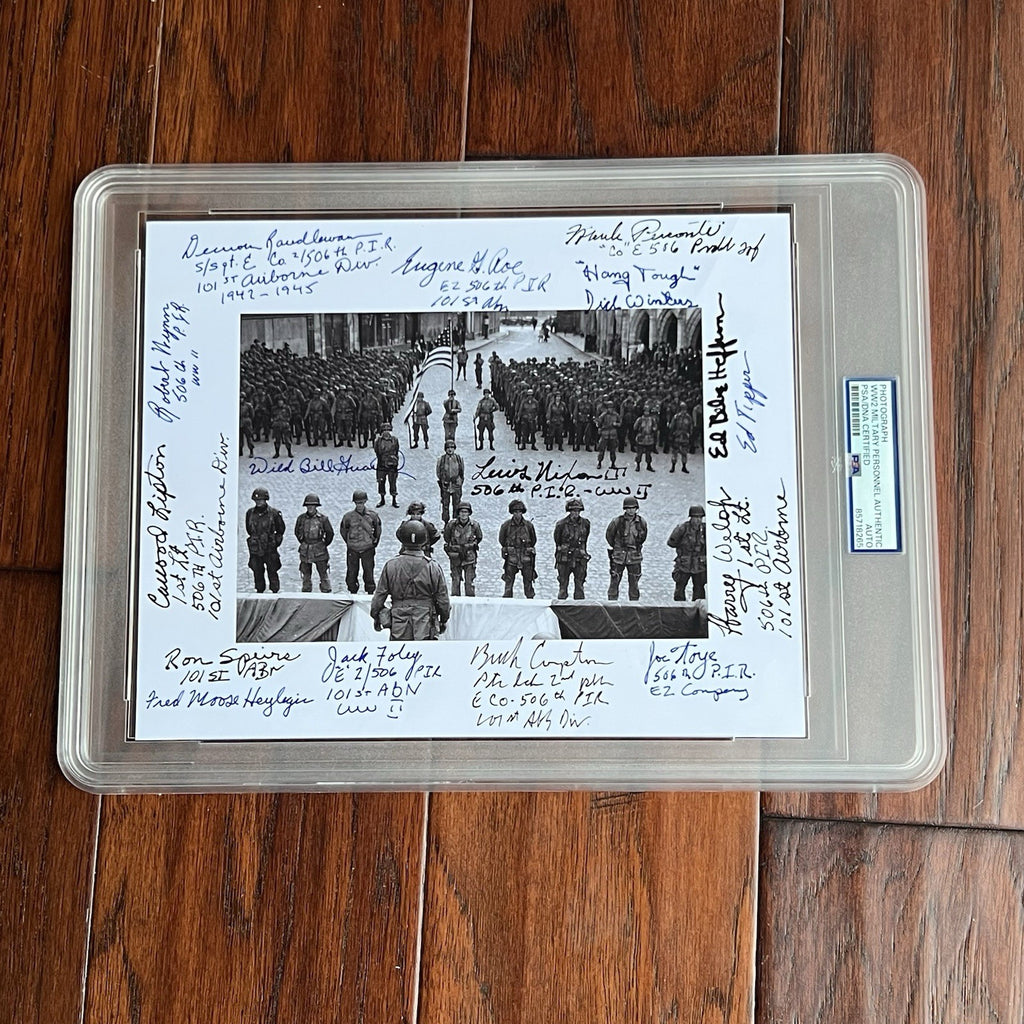 Denver Randleman
S/Sgt. E Co 2/506th P.I.R.
101st Airborne Div.
1942-1945
Eugene G. Roe
E2 506th PIR
101st Abn
Frank Perconte
"Co" E 506 Prcht Inf
"Hang Tough"
Dick Winters
Robert Wynn
506th P.I.R.
WW II
Carwood Lipton
1st Lt
506TH P.I.R.
101st Airbourne Div.
Wild Bill Guarnere
Lewis Nixon III
506th P.I.R. - WW II
Ed Babe Heffron
Ed Tipper
Harry Welsh
1st Lt.
506th PIR
101st Airborne
Ron Speirs
101ST ABN
Fred Moose Heyliger
Jack Foley
E 2/506 PIR
101ST ABN
WW II
Buck Compton
2nd pltn
E CO. 506th PIR
101st Div.
Joe Toye
506th P.I.R.
E2 Company
PHOTOGRAPH
WW2 MILITARY PERSONNEL AUTHENTIC
PSA/DNA CERTIFIED AUTO
PSA 85718265